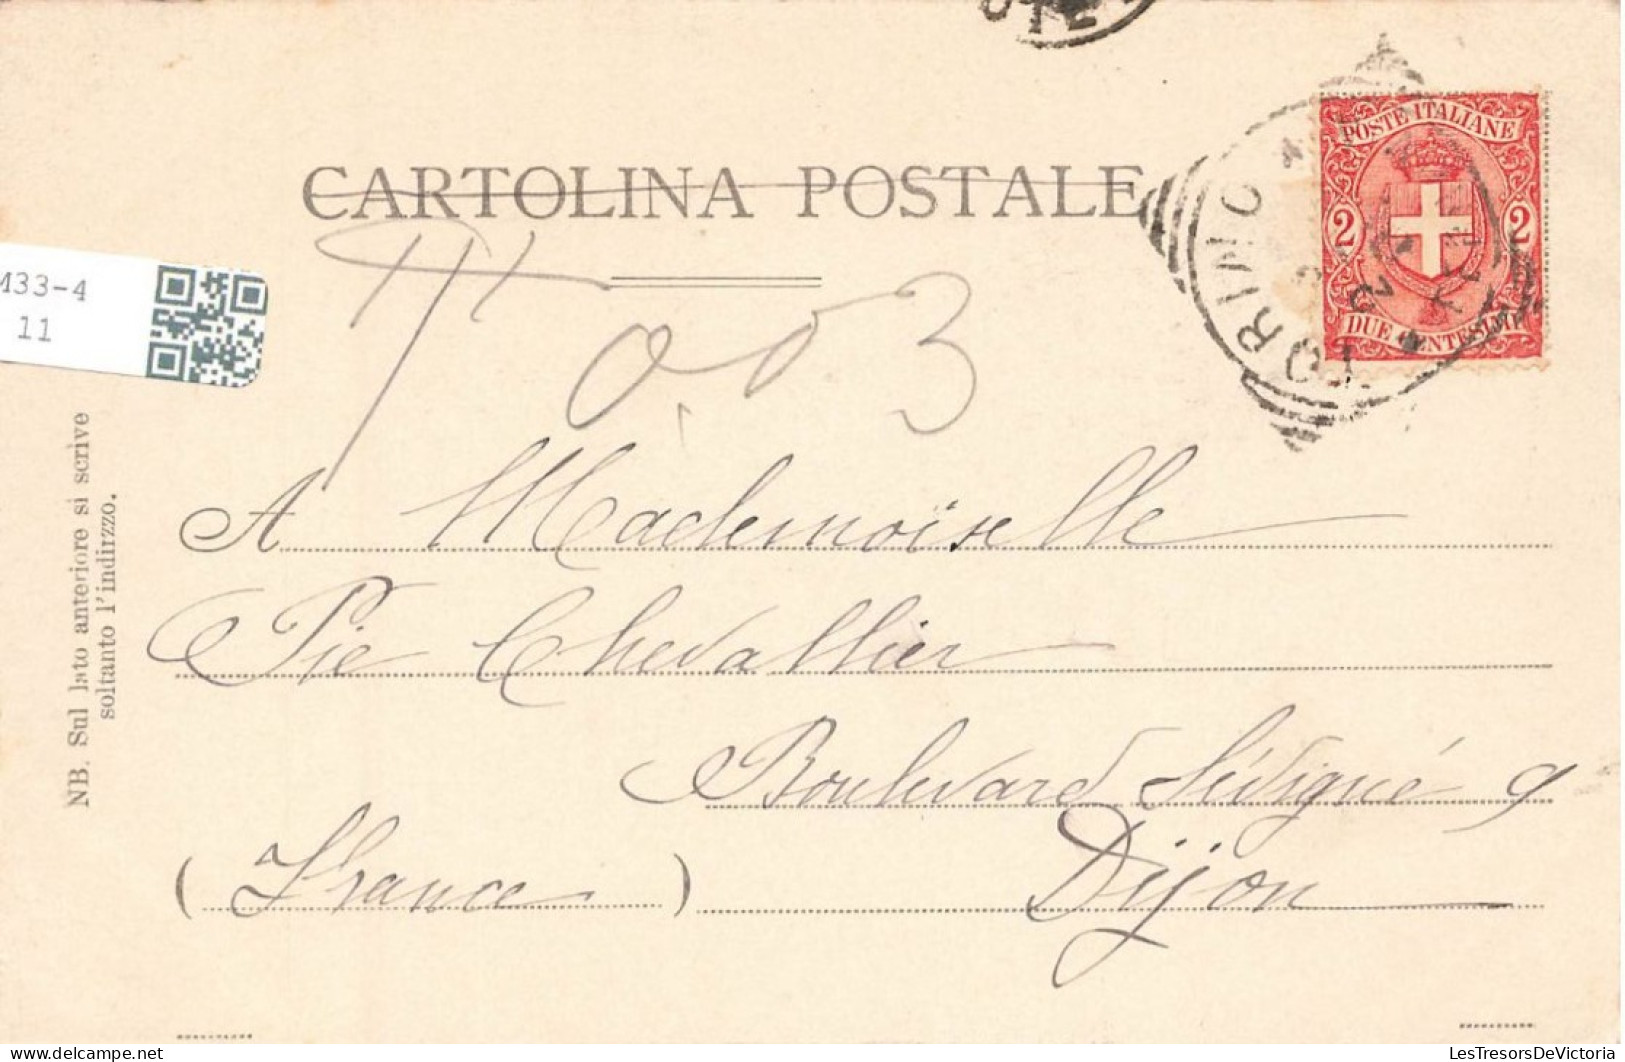 CARTOLINA POSTALE
POSTE ITALIANE
2 2
DUE CENTESIMI
TORINO
M33-4
11
T 0.03
NB. Sul lato anteriore si scrive
soltanto l'indirizzo.
A Mademoiselle
Pie Chevallier
Boulevard Sévigné 9
Dijon
(France)
LesTresorsDeVictoria